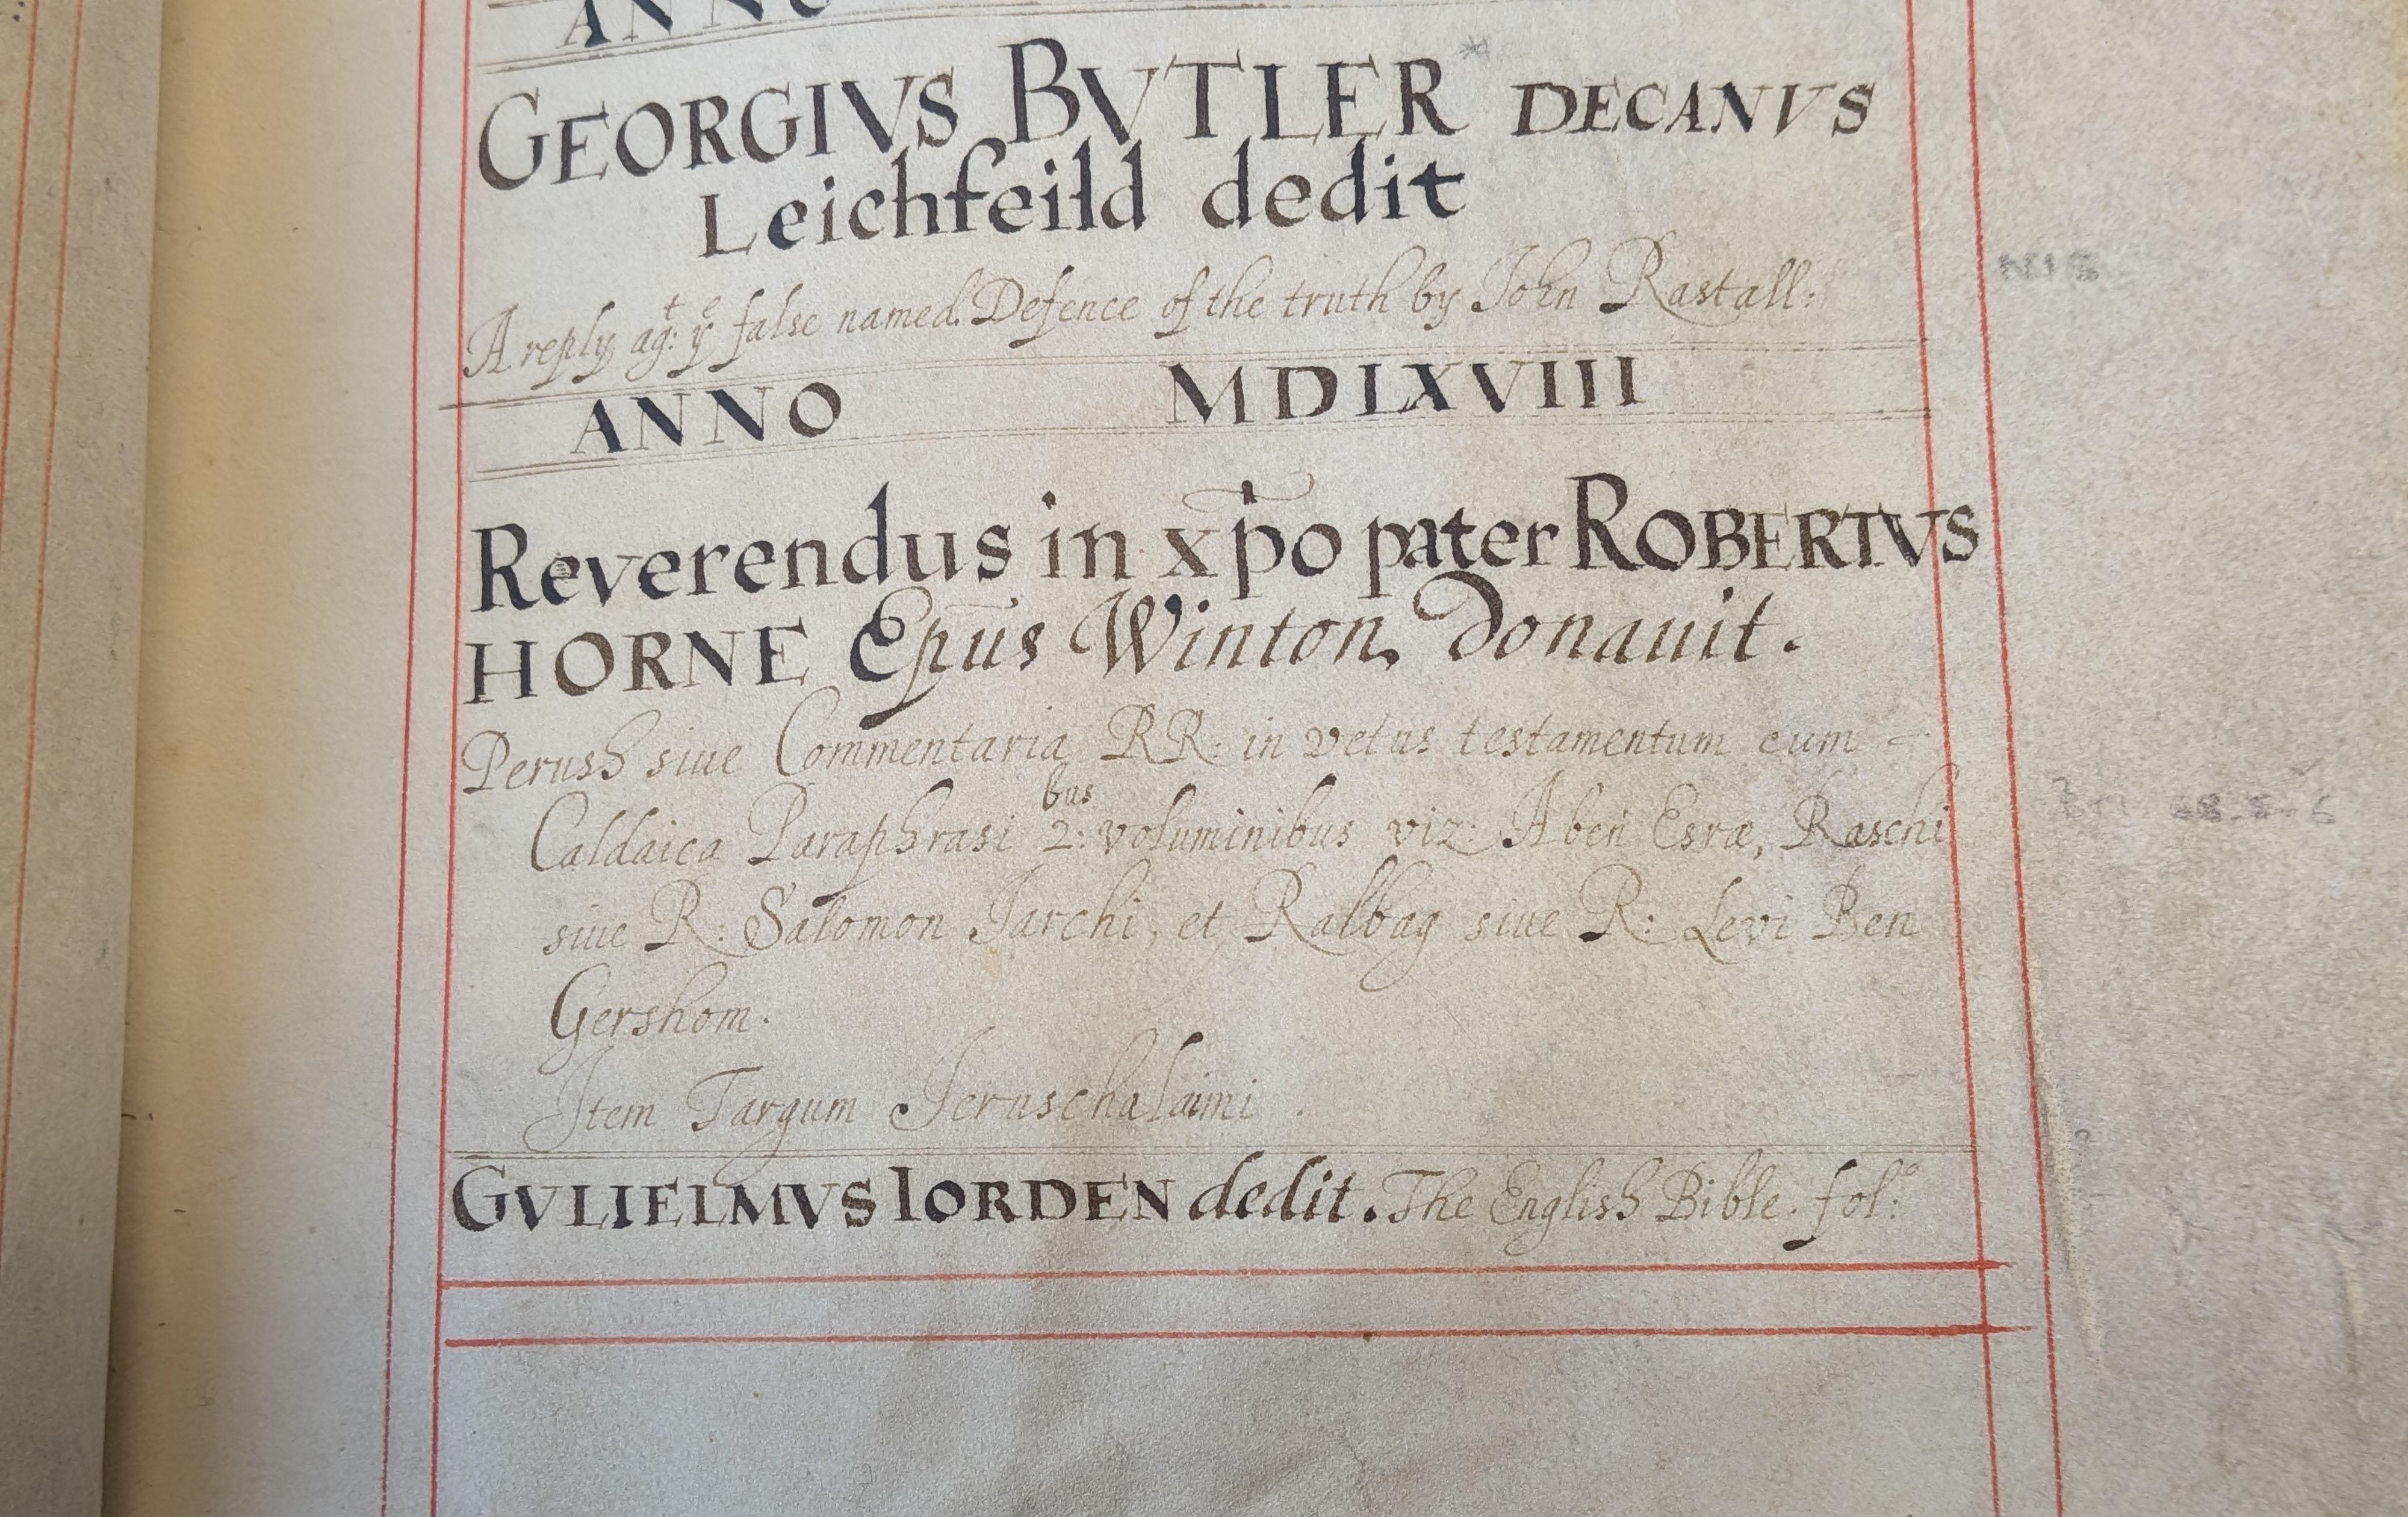 ANNO
GEORGIVS BVTLER * DECANVS
Leichfeild dedit
A reply agt: ye false named Defence of the truth by John Rastall:
ANNO MDLXVIII
Reverendus in xp̄o pater ROBERTVS
HORNE Epūs Winton. donauit.
Perush siue Commentaria RR: in vetus testamentum cum
Caldaica Paraphrasi 2:bus voluminibus viz: Aben Esræ, Raschi
siue R: Salomon Jarchi, et Ralbag siue R: Levi Ben
Gershom.
Item Targum Jeruschalaimi.
GVLIELMVS IORDEN dedit. The English Bible. folo: